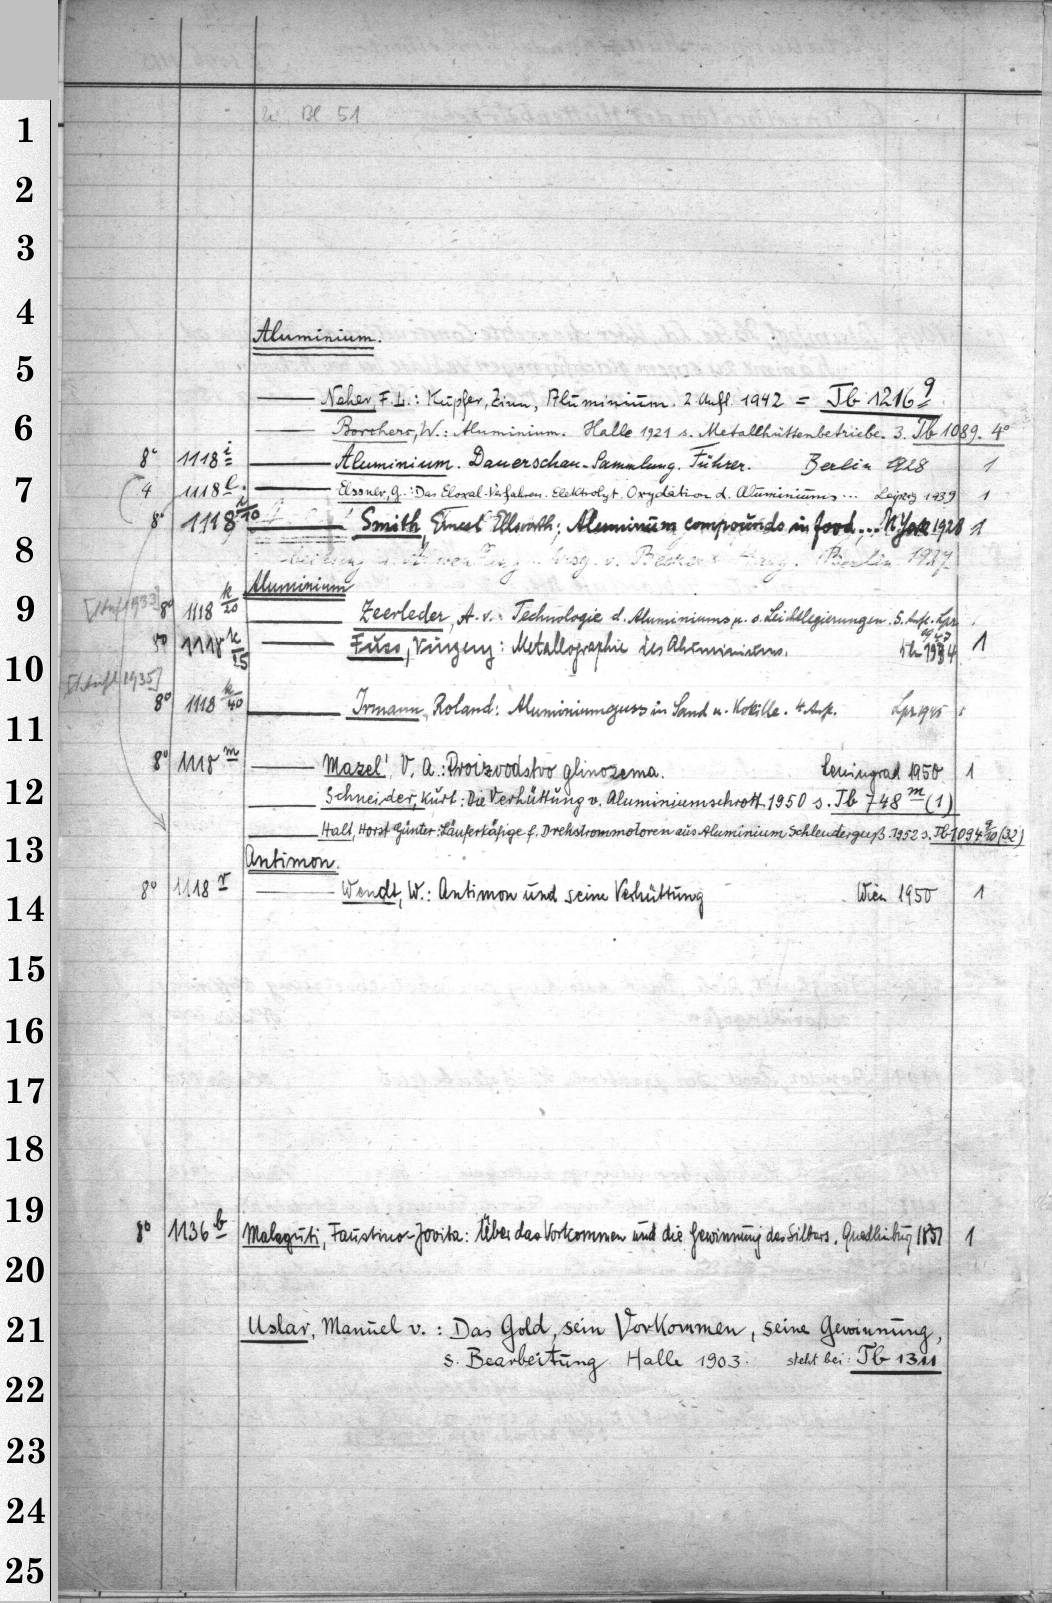 1
Bl 51
2
3
4
Aluminium.
5
Neher, F. L.: Kupfer, Zinn, Aluminium. 2. Aufl. 1942 = Tb 1216 q
6
Borchers, W.: Aluminium. Halle 1921 s. Metallhüttenbetriebe. 3. Tb 1089. 4°
8° 1118 i Aluminium. Dauerschau-Sammlung. Führer. Berlin 1928 1
7
4 1118 l. Elssner, G.: Das Eloxal-Verfahren. Elektrolyt. Oxydation d. Aluminiums... Leipzig 1939 1
8° 1118 k/10 Smith, Ernest Ellsworth: Aluminum compounds in food... N York 1928 1
8
hrsg. v. Berlin 1937
Aluminium
9
8° 1118 k/20 Zeerleder, A. v.: Technologie d. Aluminiums u. s. Leichtlegierungen. 5. Aufl. Lpz
8° 1118 k/15 Fuss, : Metallographie des Aluminiums. 1934 1
10
1935]
8° 1118 k/40 Irmann, Roland: Aluminiumguss in Sand u. Kokille. 4. Aufl. Lpz 1945
11
8° 1118 m Mazel', V. A.: Proizvodstvo glinozema. Leningrad 1950 1
12
Schneider, Kurt: Die Verhüttung v. Aluminiumschrott 1950 s. Tb 748 m (1)
Halt, Horst Günter: Läuferkäfige f. Drehstrommotoren aus Aluminium Schleuderguß. 1952 s. Tb 1094 q/10 (32)
13
Antimon.
8° 1118 r Wendt, W.: Antimon und seine Verhüttung Wien 1950 1
14
15
16
17
18
19
8° 1136 b Malaguti, Faustino-Jovita: Über das Vorkommen und die Gewinnung des Silbers. Quedlinburg 1851 1
20
21
Uslar, Manuel v.: Das Gold, sein Vorkommen, seine Gewinnung,
s. Bearbeitung Halle 1903. steht bei: Tb 1311
22
23
24
25